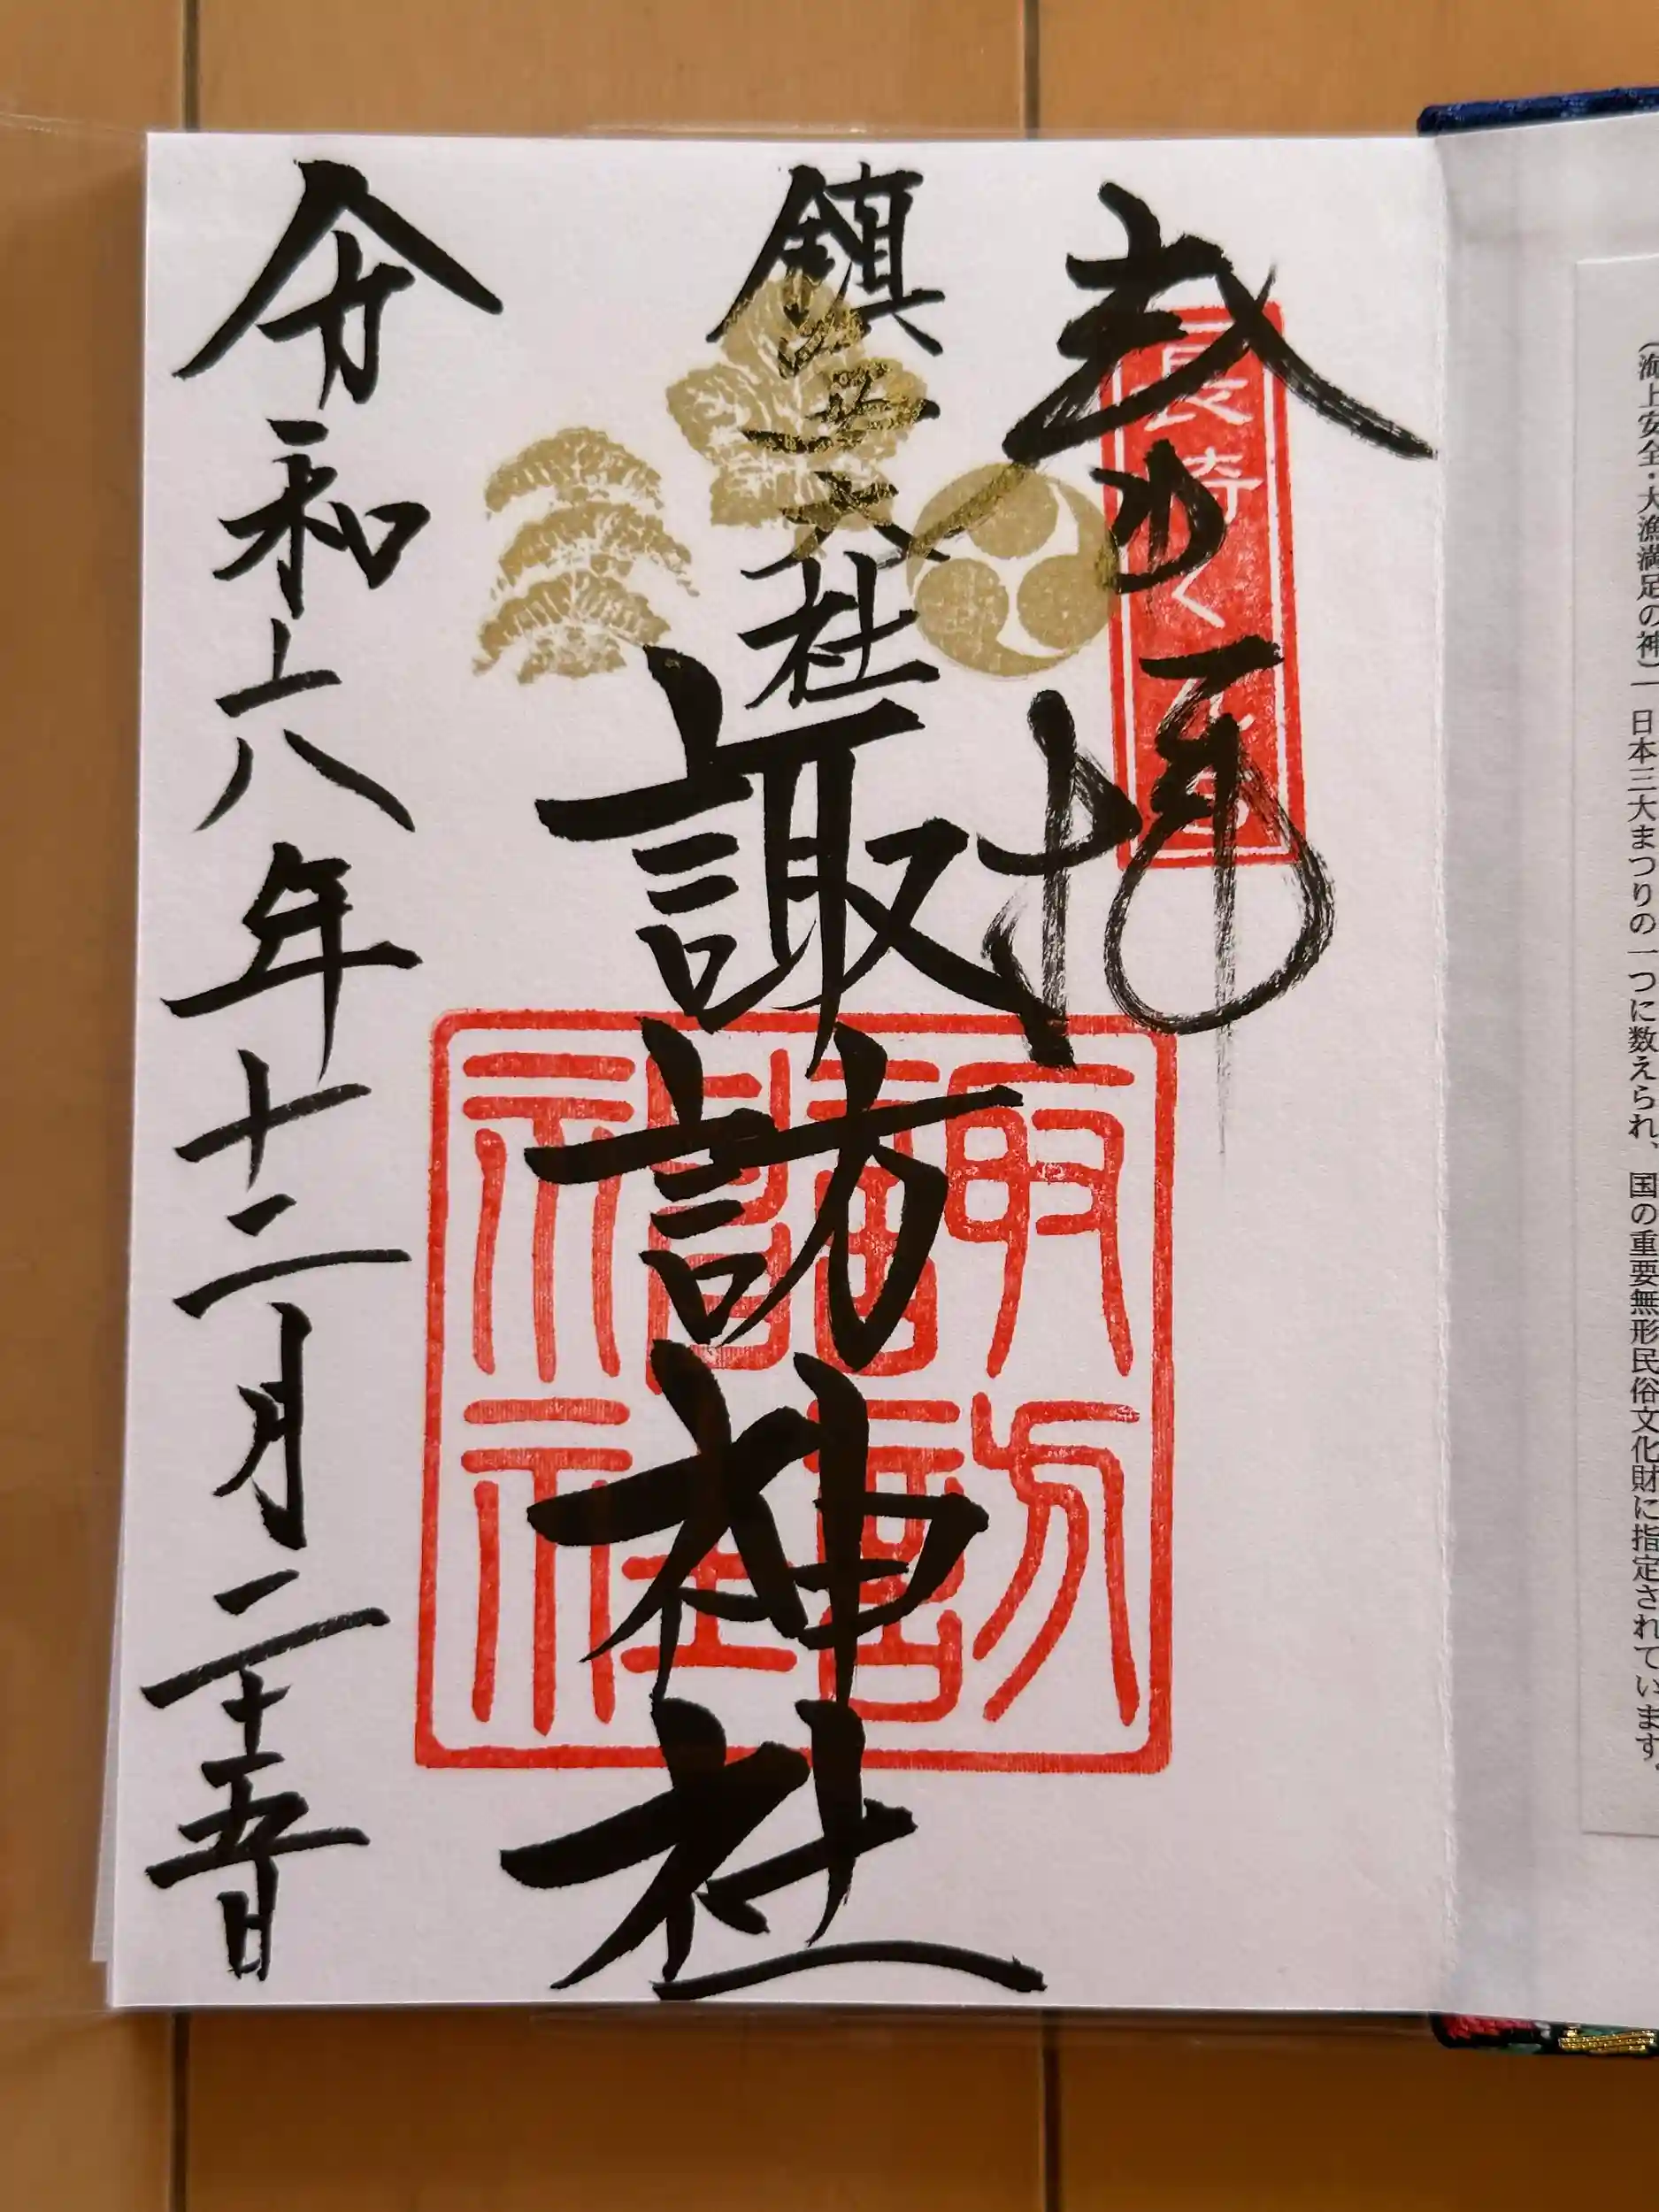 （海上安全・大漁満足の神）
日本三大まつりの一つに数えられ、国の重要無形民俗文化財に指定されています。
奉拝
長崎くんち
鎮西大社
諏訪神社
諏訪神社
令和六年十二月二十五日